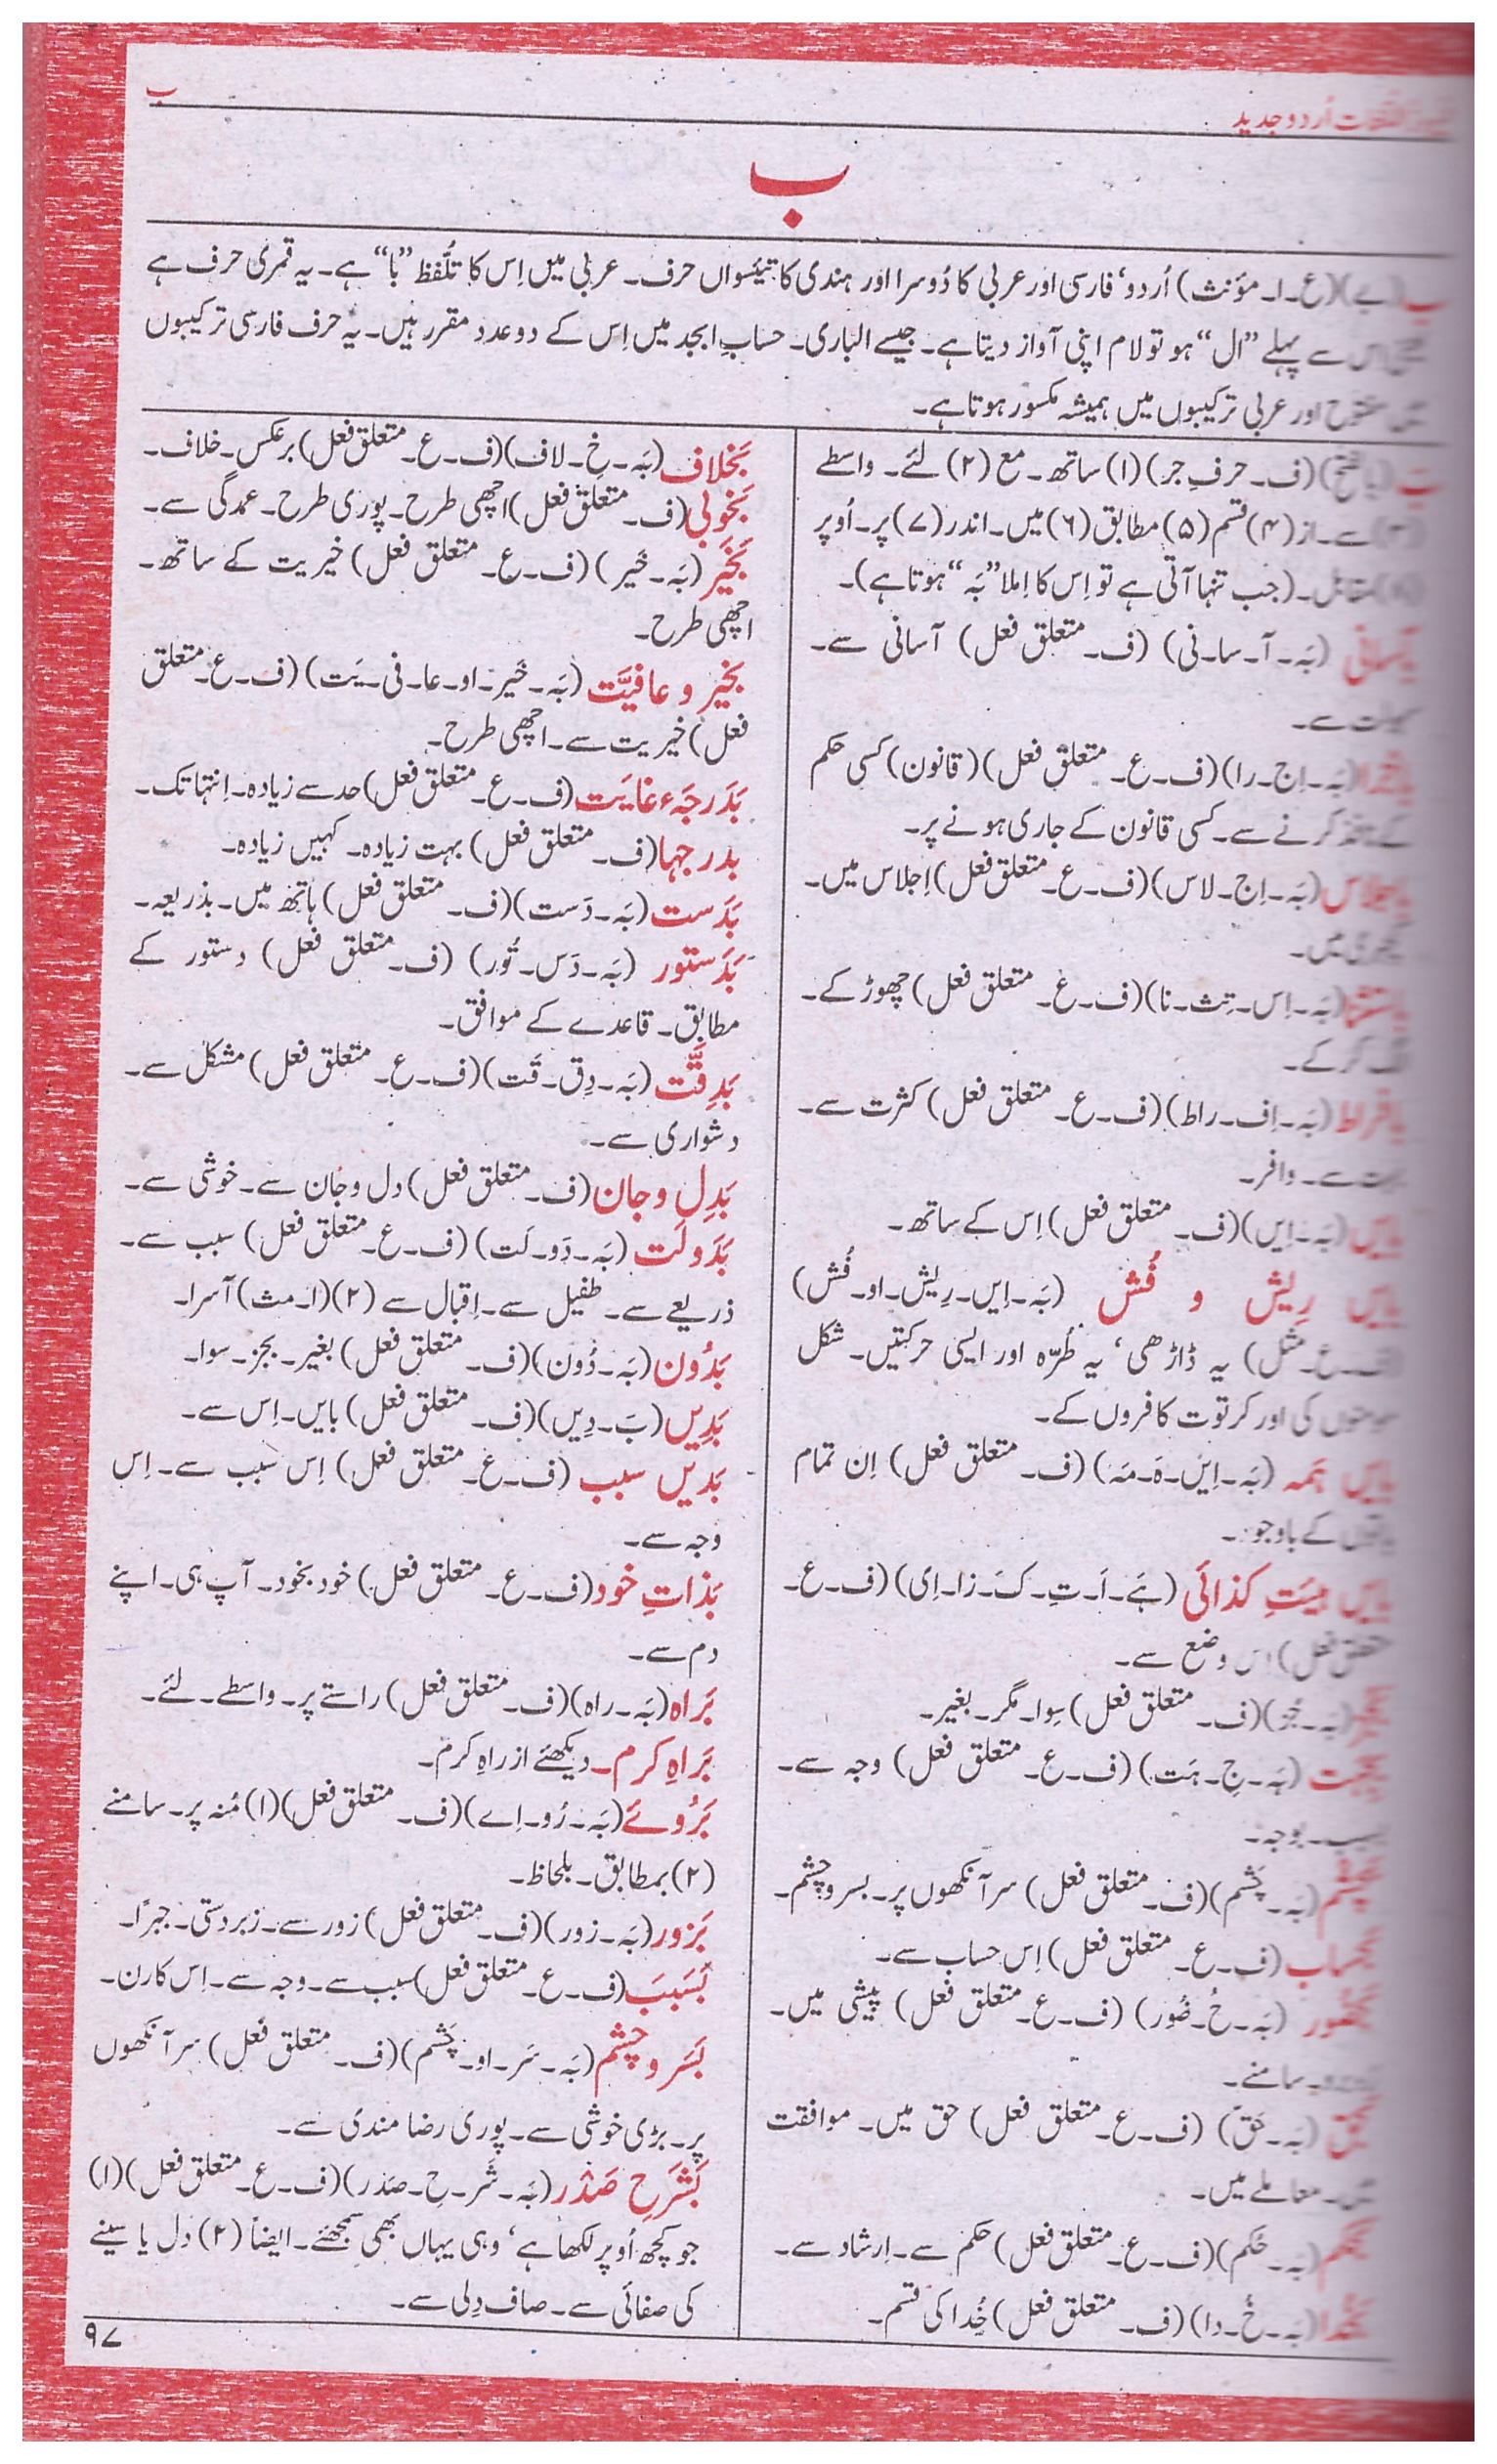 اللغات اُردو جدید
ب
ب
ب (بے) (ع۔ا۔ مؤنث) اُردو، فارسی اور عربی کا دُوسرا اور ہندی کا تیئسواں حرف۔ عربی میں اِس کا تلُّفظ ”بَا“ ہے۔ یہ قمری حرف ہے
اِس سے پہلے ”ال“ ہو تو لام اپنی آواز دیتا ہے۔ جیسے الباری۔ حسابِ ابجد میں اِس کے دو عدد مقرر ہیں۔ یہ حرف فارسی ترکیبوں
میں مفتوح اور عربی ترکیبوں میں ہمیشہ مکسور ہوتا ہے۔
بَ (با فتح) (ف۔ حرفِ جر) (۱) ساتھ۔ مع (۲) لئے۔ واسطے
(۳) سے۔ از (۴) قسم (۵) مطابق (۶) میں۔ اندر (۷) پر۔ اُوپر
(۸) مقابل۔ (جب تنہا آتی ہے تو اِس کا اِملا ”بَہ“ ہوتا ہے)۔
بآسانی (بَہ۔ آ۔ سا۔ نی) (ف۔ متعلق فعل) آسانی سے۔
سہولت سے۔
(بَہ۔ اِج۔ را) (ف۔ ع۔ متعلق فعل) (قانون) کسی حکم
کے نافذ کرنے سے۔ کسی قانون کے جاری ہونے پر۔
باجلاس (بَہ۔ اِج۔ لاس) (ف۔ ع۔ متعلق فعل) اِجلاس میں۔
کچہری میں۔
باستثنا (بَہ۔ اِس۔ تِث۔ نا) (ف۔ ع۔ متعلق فعل) چھوڑ کے۔
الگ کر کے۔
بافراط (بَہ۔ اِف۔ راط) (ف۔ ع۔ متعلق فعل) کثرت سے۔
بہت سے۔ وافر۔
بایں (بَہ۔ اِیں) (ف۔ متعلق فعل) اِس کے ساتھ۔
بایں رِیش و فُش (بَہ۔ اِیں۔ رِیش۔ او۔ فُش)
(ف۔ ع۔ مثل) یہ ڈاڑھی، یہ طُرّہ اور ایسی حرکتیں۔ شکل
مومنوں کی اور کرتوت کافروں کے۔
بایں ہَمہ (بَہ۔ اِیں۔ ہَ۔ مَہ) (ف۔ متعلق فعل) اِن تمام
باتوں کے باوجود۔
بایں ہیئتِ کذائی (ہَے۔ اَ۔ تِ۔ کَ۔ زا۔ اِی) (ف۔ ع۔
متعلق فعل) اِس وضع سے۔
بجز (بَہ۔ جُز) (ف۔ متعلق فعل) سِوا۔ مگر۔ بغیر۔
بجہت (بَہ۔ جِ۔ ہَت) (ف۔ ع۔ متعلق فعل) وجہ سے۔
بسبب۔ بوجہ۔
بچشم (بَہ۔ چَشم) (ف۔ متعلق فعل) سر آنکھوں پر۔ بسر و چشم۔
بحساب (ف۔ ع۔ متعلق فعل) اِس حساب سے۔
بحضور (بَہ۔ حُ۔ ضُور) (ف۔ ع۔ متعلق فعل) پیشی میں۔
سامنے۔
بحق (بَہ۔ حَق) (ف۔ ع۔ متعلق فعل) حق میں۔ موافقت
میں۔ معاملے میں۔
بحکم (بَہ۔ حُکم) (ف۔ ع۔ متعلق فعل) حکم سے۔ اِرشاد سے۔
بخدا (بَہ۔ خُ۔ دا) (ف۔ متعلق فعل) خُدا کی قسم۔
بَخلاف (بَہ۔ خِ۔ لاف) (ف۔ ع۔ متعلق فعل) برعکس۔ خلاف۔
بَخوبی (ف۔ متعلق فعل) اچھی طرح۔ پوری طرح۔ عمدگی سے۔
بَخَیر (بَہ۔ خَیر) (ف۔ ع۔ متعلق فعل) خیریت کے ساتھ۔
اچھی طرح۔
بخیر و عافِیَّت (بَہ۔ خَیر۔ او۔ عا۔ فی۔ یَت) (ف۔ ع۔ متعلق
فعل) خیریت سے۔ اچھی طرح۔
بَدَرجَہء غایَت (ف۔ ع۔ متعلق فعل) حد سے زیادہ۔ اِنتہا تک۔
بدرجہا (ف۔ متعلق فعل) بہت زیادہ۔ کہیں زیادہ۔
بَدَست (بَہ۔ دَست) (ف۔ متعلق فعل) ہاتھ میں۔ بذریعہ۔
بَدَستور (بَہ۔ دَس۔ تُور) (ف۔ متعلق فعل) دستور کے
مطابق۔ قاعدے کے موافق۔
بَدِقَّت (بَہ۔ دِق۔ قَت) (ف۔ ع۔ متعلق فعل) مشکل سے۔
دشواری سے۔
بَدِل و جان (ف۔ متعلق فعل) دل و جان سے۔ خوشی سے۔
بَدَولَت (بَہ۔ دَو۔ لَت) (ف۔ ع۔ متعلق فعل) سبب سے۔
ذریعے سے۔ طفیل سے۔ اِقبال سے (۲) (ا۔ مث) آسرا۔
بَدُون (بَہ۔ دُون) (ف۔ متعلق فعل) بغیر۔ بجز۔ سوا۔
بَدِیں (بَ۔ دِیں) (ف۔ متعلق فعل) بایں۔ اِس سے۔
بَدیں سبب (ف۔ ع۔ متعلق فعل) اِس سبب سے۔ اِس
وجہ سے۔
بَذاتِ خود (ف۔ ع۔ متعلق فعل) خود بخود۔ آپ ہی۔ اپنے
دم سے۔
بَراہ (بَہ۔ راہ) (ف۔ متعلق فعل) راستے پر۔ واسطے۔ لئے۔
بَراہِ کرم۔ دیکھئے از راہِ کرم۔
بَرُوئے (بَہ۔ رُو۔ اے) (ف۔ متعلق فعل) (۱) مُنہ پر۔ سامنے
(۲) بمطابق۔ بلحاظ۔
بَزور (بَہ۔ زور) (ف۔ متعلق فعل) زور سے۔ زبردستی۔ جبرًا۔
بَسَبَب (ف۔ ع۔ متعلق فعل) سبب سے۔ وجہ سے۔ اِس کارن۔
بَسَر و چشم (بَہ۔ سَر۔ او۔ چَشم) (ف۔ متعلق فعل) سر آنکھوں
پر۔ بڑی خوشی سے۔ پوری رضا مندی سے۔
بَشَرحِ صَدَر (بَہ۔ شَر۔ حِ۔ صَدر) (ف۔ ع۔ متعلق فعل) (۱)
جو کچھ اُوپر لکھا ہے، وہی یہاں بھی سمجھئے۔ ایضاً (۲) دل یا سینے
کی صفائی سے۔ صاف دِلی سے۔
۹۷